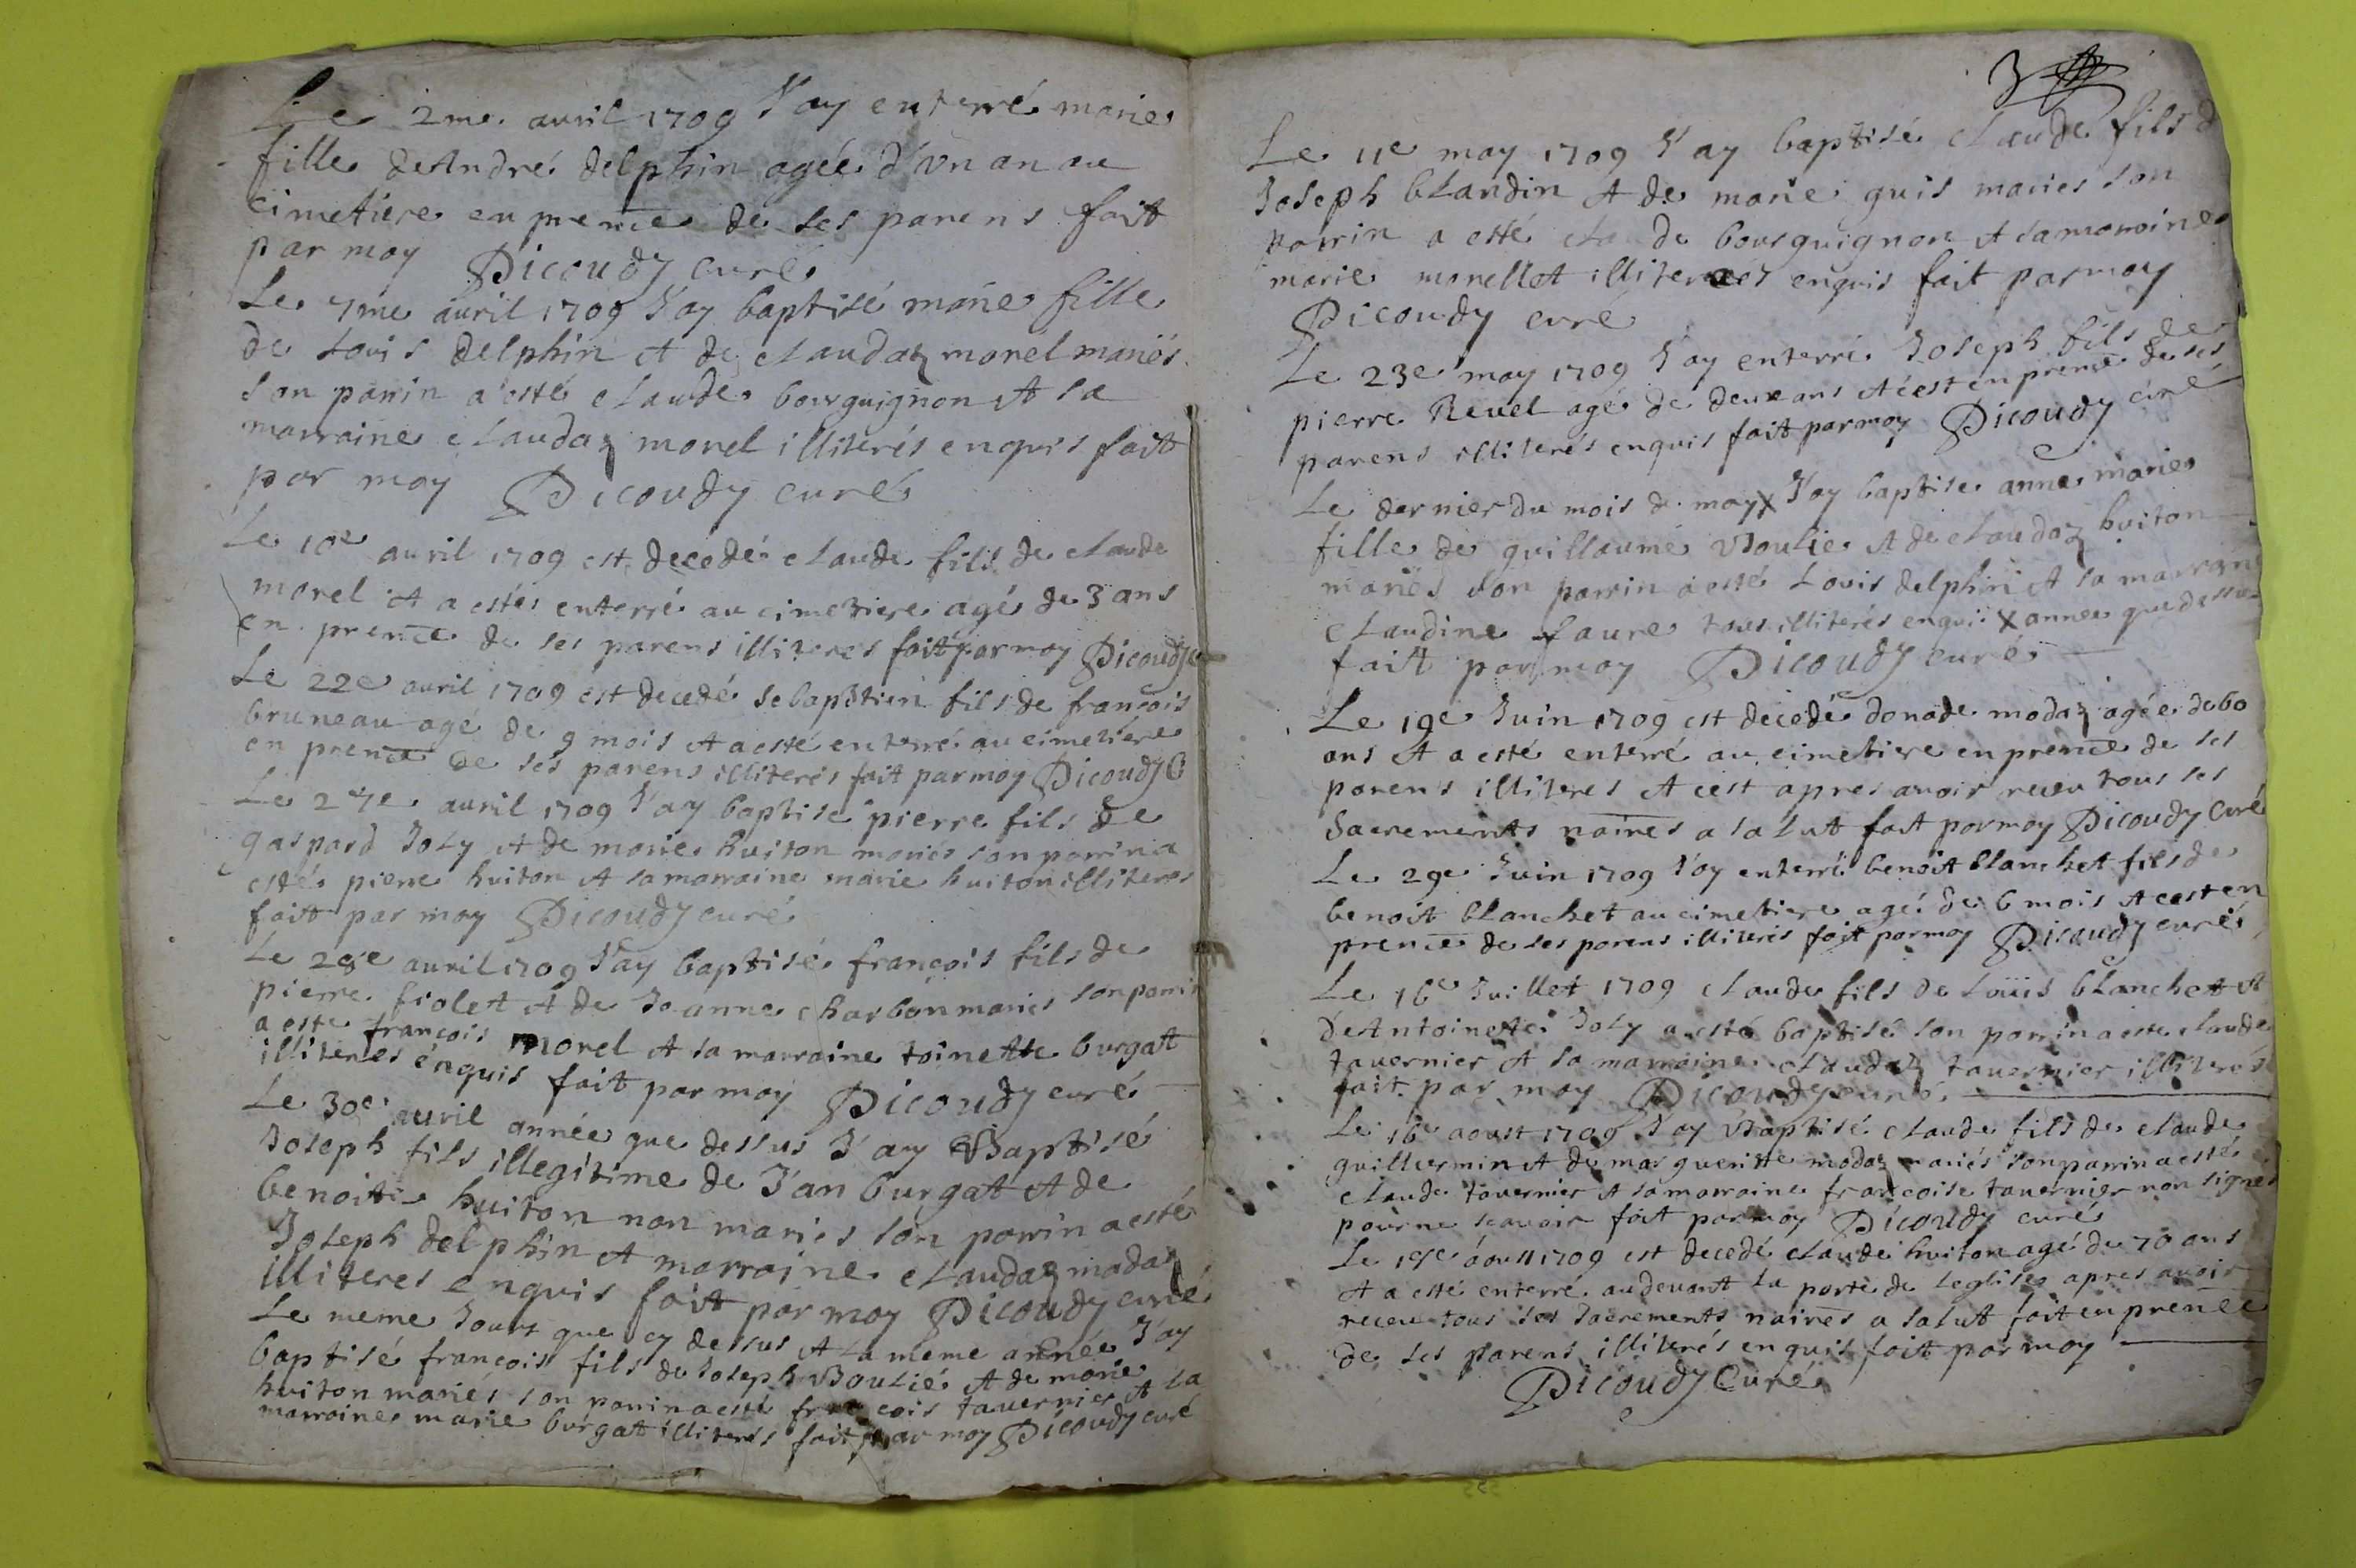 Le 2me. avril 1709 J'ay enterré marie
fille deAndré delphin agée d'un an au
cimetiere en prence de ses parens fait
par moy Dicoudy curé
Le 7me avril 1709 J'ay baptisé marie fille
de Louis delphin et de claudaz morel mariés
son parrin a esté claude bourguignon et sa
marraine claudaz morel illiterés enquis fait
par moy Dicoudy curé
Le 10e avril 1709 est decedé claude fils de claude
morel et a esté enterré au cimetiere agé de 3 ans
en prence de ses parens illiteres fait par moy Dicoudy
Le 22e avril 1709 est decedé sebapstien fils de françois
bruneau agé de 9 mois et a esté enterré au cimetiere
en prence de ses parens illiterés fait par moy Dicoudy C
Le 27e avril 1709 J'ay baptisé pierre fils de
gaspard Joly et de marie huiton mariés son parrin a
esté pierre huiton et sa marraine marie huiton illiteres
fait par moy Dicoudy curé
Le 28e avril 1709 J'ay baptisé françois fils de
pierre fiolet et de Jeanne charbon mariés son parrin
a esté françois morel et sa marraine toinette burgat
illiteres enquis fait par moy Dicoudy curé
Le 30e avril année que dessus J'ay Baptisé
Joseph fils illegitime de J'an burgat et de
benoite huiton non mariés son parrin a esté
Joseph delphin et marraine claudaz madaz
illiteres enquis fait par moy Dicoudy curé
Le meme Jour que cy dessus et la meme année J'ay
baptisé françois fils de Joseph Boulié et de marie
huiton mariés son parrin a esté françois tavernier et la
marraine marie burgat illiterés fait par moy Dicoudy curé
3
Le 11e may 1709 J'ay baptisé claude fils d
Joseph blandin et de marie guis mariés son
parrin a esté claude bourguignon et sa marraine
marie morellet illiterés enquis fait par moy
Dicoudy curé
Le 23e may 1709 J'ay enterré Joseph fils de
pierre Revel agé de deux ans et c'est en prence de ses
parens illiterés enquis fait par moy Dicoudy curé
Le dernier du mois de may X J'ay baptisé anne marie
fille de guillaume Boulie et de claudaz huiton
mariés son parrin a esté Louis delphin et sa marraine
claudine faure tous illiterés enquis X année que dessus
fait par moy Dicoudy curé
Le 19e Juin 1709 est decedé donade modaz agée de 60
ans et a esté enterré au cimetiere en prence de ses
parens illiteres et c'est apres avoir receu tous ses
sacrements naires a salut fait par moy Dicoudy Curé
Le 29e Juin 1709 J'ay enterré benoit blanchet fils de
benoit blanchet au cimetiere agé de 6 mois et c'est en
prence de ses parens illiterés fait par moy Dicoudy curé
Le 16e Juillet 1709 claude fils de Louis blanchet et
deAntoinette Joly a esté baptisé son parrin a esté claude
tavernier et sa marraine claudaz tavernier illiterés
fait par moy Dicoudy curé
Le 16e aoust 1709 J'ay Baptisé claude fils de claude
guillermin et de margueritte modaz mariés son parrin a esté
claude tavernier et sa marraine françoise tavernier non signés
pour ne scavoir fait par moy Dicoudy curé
Le aoust 1709 est decedé claude huiton agé de 70 ans
et a esté enterré audevant la porte de Leglise apres avoir
receu tous ses sacrements naires a salut fait en prence
de ses parens illiterés enquis fait par moy
Dicoudy Curé